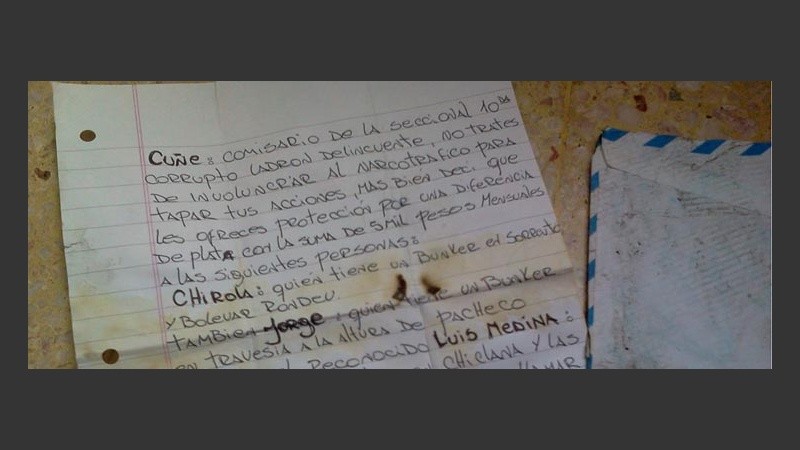 CUÑE: COMISARIO DE LA SECCIONAL 10ma
CORRUPTO LADRON DELINCUENTE, NO TRATES
DE INVOLUNCRAR AL NARCOTRAFICO PARA
TAPAR TUS ACCIONES MAS BIEN DECI QUE
LES OFRECES PROTECCIÓN POR UNA DIFERENCIA
DE PLATA CON LA SUMA DE 5 MIL PESOS MENSUALES
A LAS SIGUIENTES PERSONAS:
CHIROLA: QUIEN TIENE UN BUNKER EN SORRENTO
Y BOLEVAR RONDEU.
TAMBIEN JORGE: QUIEN TIENE UN BUNKER
EN TRAVESIA A LA ALTURA DE PACHECO
RECONOCIDO LUIS MEDINA:
CHICLANA Y LAS